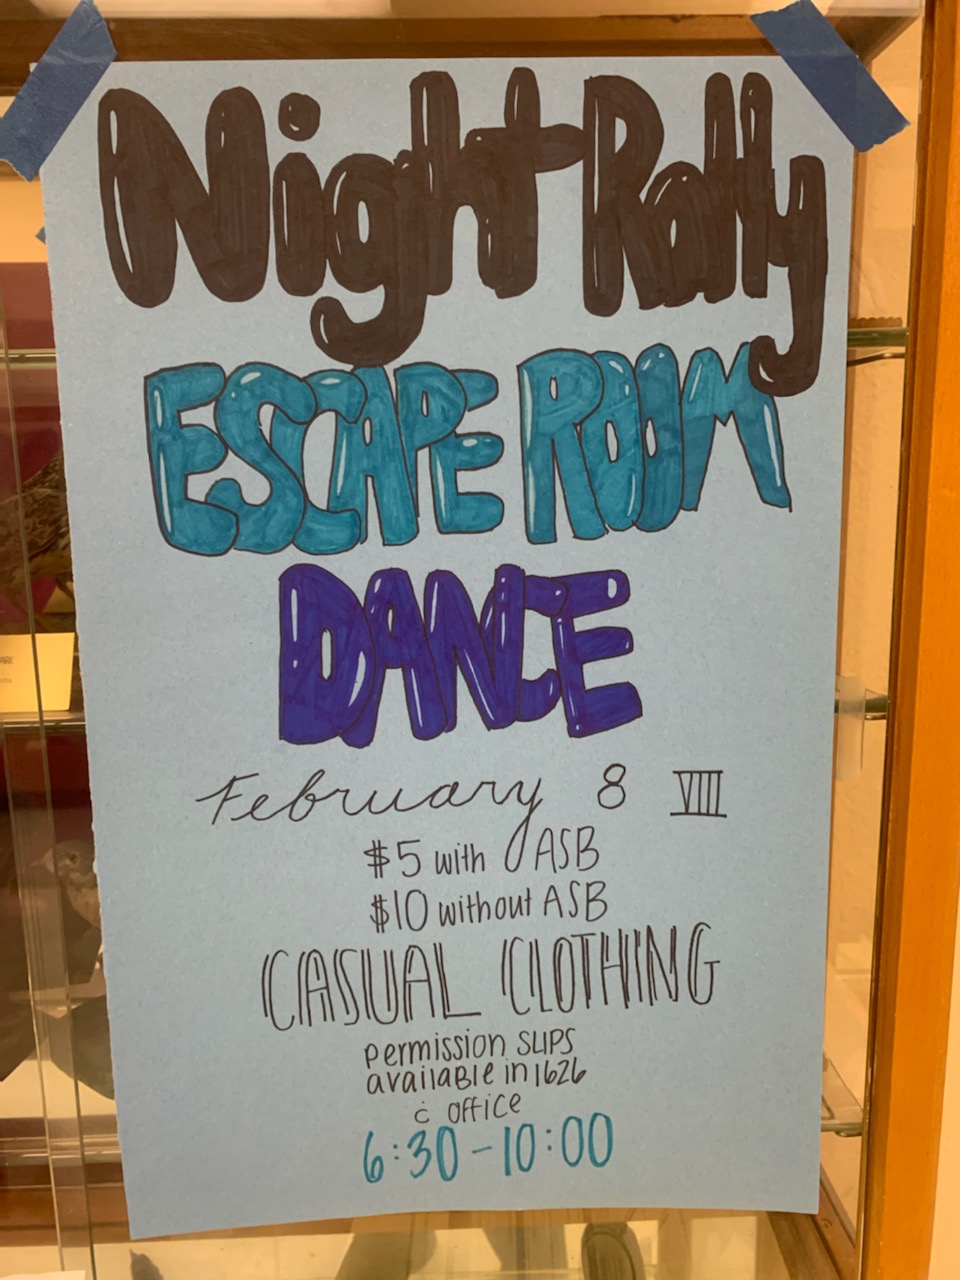 Night Rally
ESCAPE ROOM
DANCE
February 8 VIII
$5 with ASB
$10 without ASB
CASUAL CLOTHING
permission SLIPS
available in 1626
& office
6:30-10:00